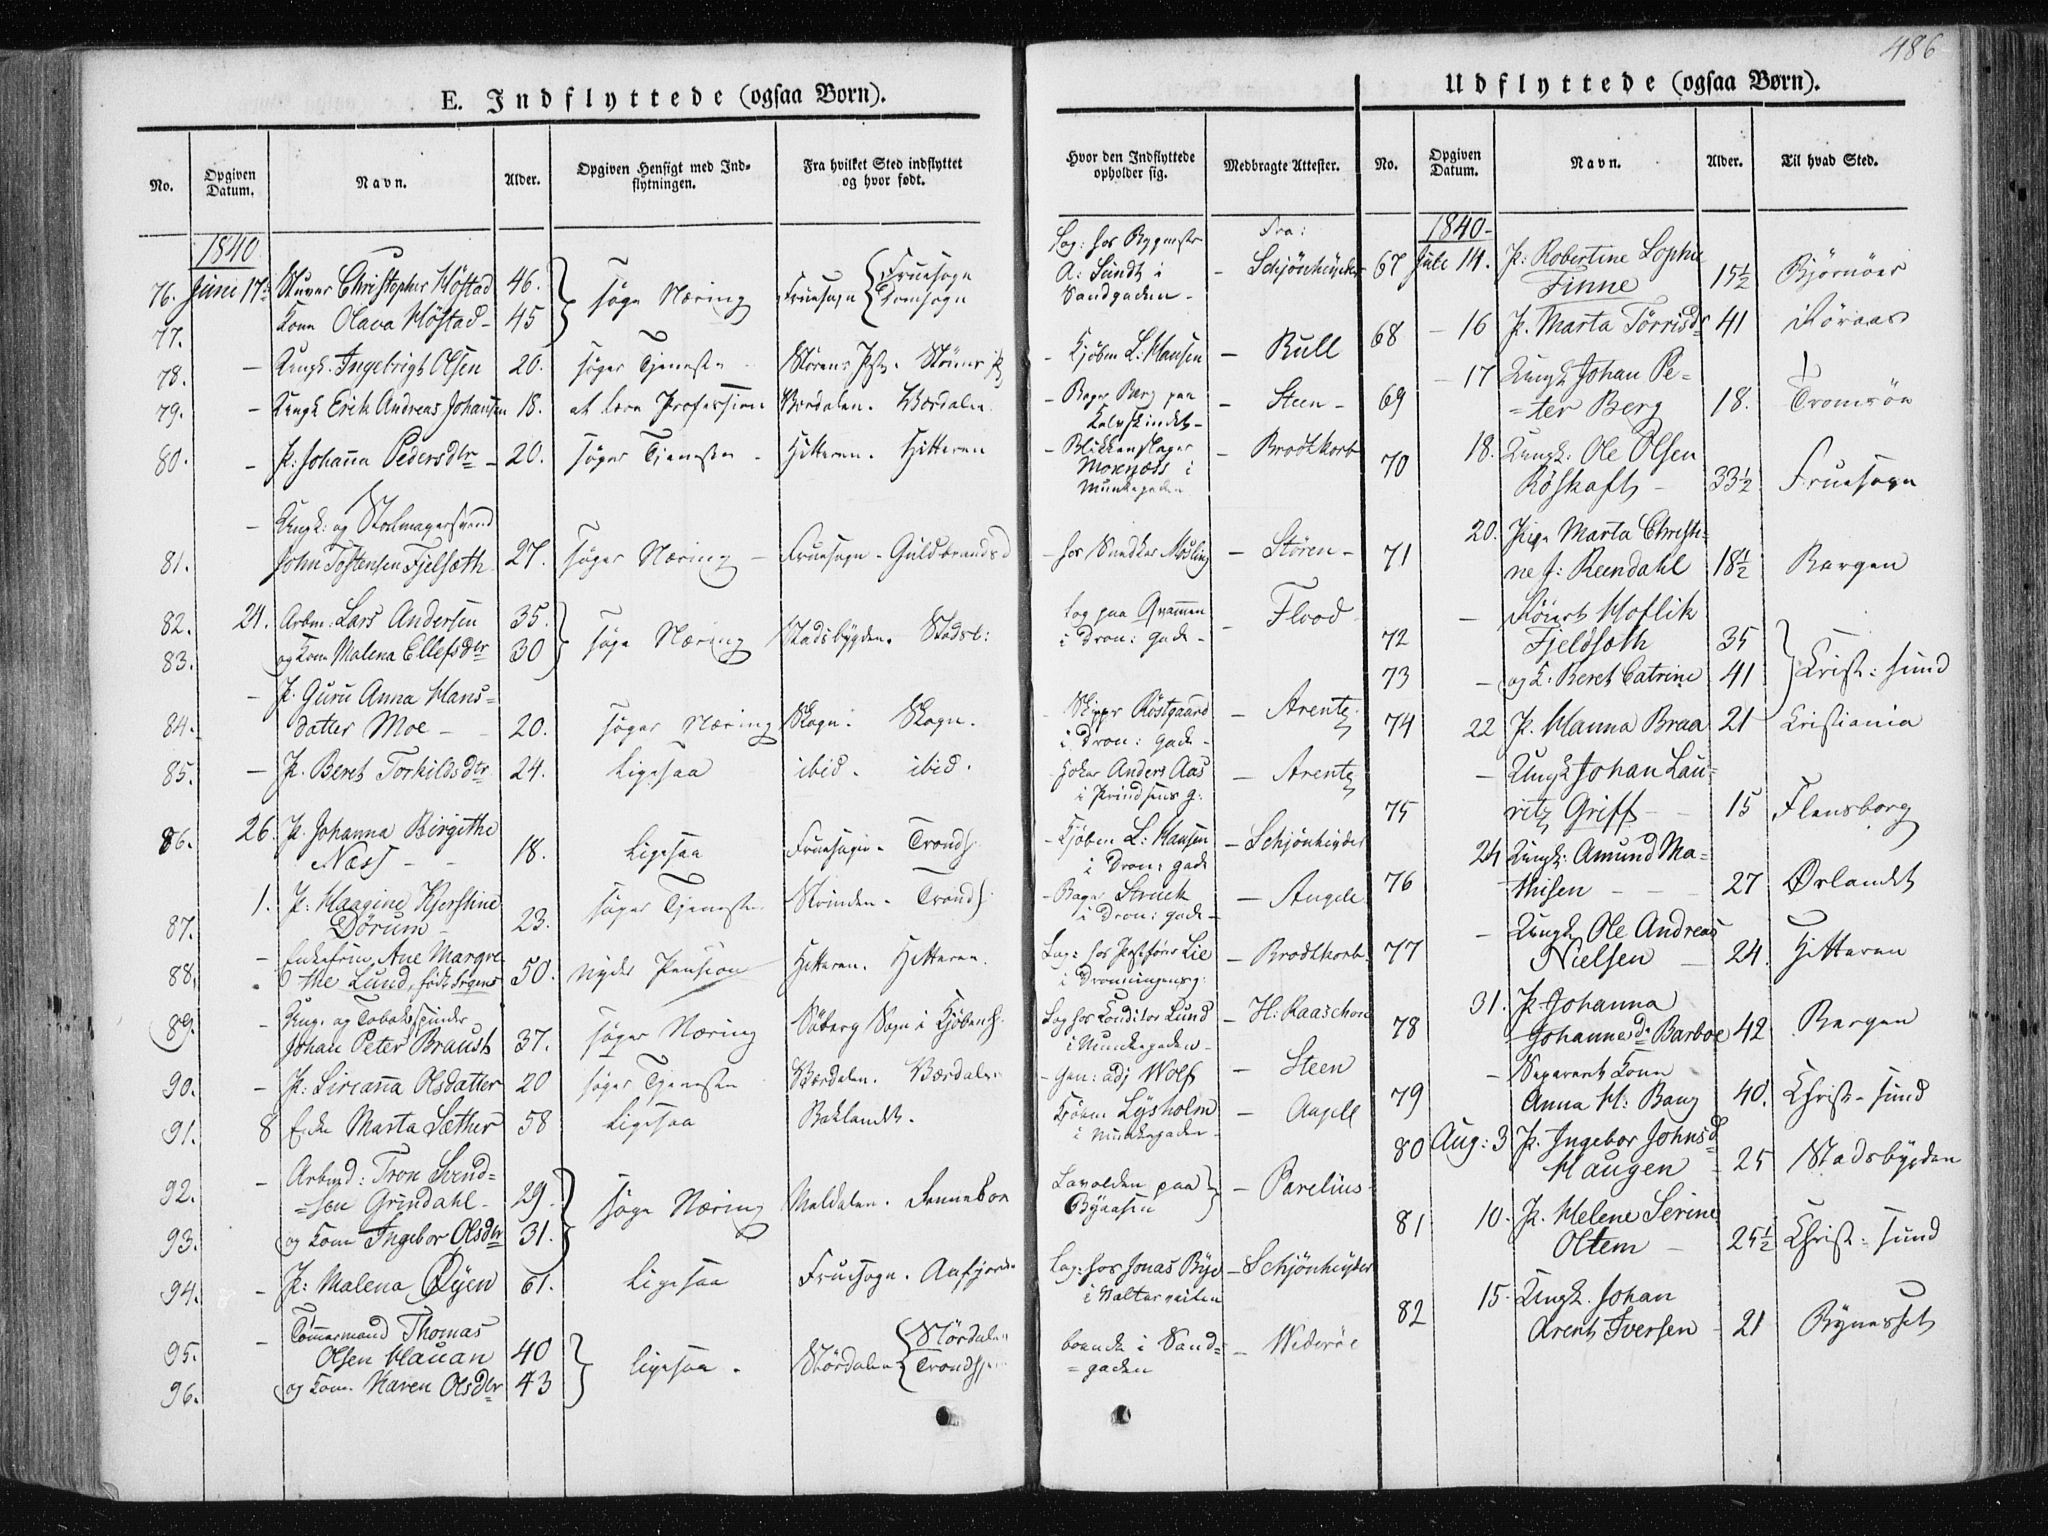 486
E. Indflyttede (ogsaa Børn).
No. Opgiven Datum. Navn. Alder. Opgiven Hensigt med Indflytningen. Fra hvilket Sted indflyttet og hvor født. Hvor den Indflyttede opholder sig. Medbragte Attester.
1840
76. Juni 17. Christopher Höstad 46. søge Næring Fruesogn Fruesogn Log: hos A: Sundt i Sandgaden - Fra: Schjönheyder
77. Kone Olava Höstad 45
78. - Ungk. Ingebrigt Olsen 20. søger Tjeneste Störens Pst. Kjøbm L: Hansen - Bull
79. - Ungk Erik Andreas Johansen 18. at lære Profession Værdalen. Værdalen. - Bager Berg paa Kalvskindet - Steen
80. - P: Johanna Pedersdtr 20. søger Tjeneste - Hitteren. Hitteren - Blikkenslager Moxness i Munkegaden - Brodtkorb
81. - Ungk: og Stolmagersvend John Tostensen Fjelsæth 27. søger Næring - Fruesogn - Guldbrandsd - hos Snedker Mösling - Stören -
82. 21. Arbm: Lars Andersen 35. søge Næring Stadsbygden. Stadsb: Log paa Qvammen i Dron: gade - Flood
83. og Kone Malena Ellefsdtr 30
84. - P. Guru Anna Hansdatter Moe - 20. søger Næring Skogn. Skogn. Skippr Röstgaard i Dron: gade - Arentz
85. - P. Beret Torkildsdtr 24. Ligesaa ibid. ibid. Anders Aas i Prindsens g: - Arentz
86. 26. P. Johanna Birgithe Næss - - 18. Ligesaa Fruesogn - Trondh. - Kjøbm L: Hansen i Dron: gade - Schjönheyder
87. 1. P. Haagine Kjerstine Dörum - 23. søger Tjeneste Strinden - Trondh. - Bager Struck i Dron: gade - Angell
88. - Enkefru Ane Margrethe Lund, født 50. nyder Pension Hitteren. Hitteren. Log: hos Lie i Dronningensg: - Brodtkorb
89. - Ung. og Tobaksspinder Johan Peter Braust 37. søger Næring Sogn i Kjöbenh. Log hos Conditor Lund i Munkegaden - H: Kaaschow
90. - P: Sirianna Olsdatter 20 søger Tjeneste Værdalen. Værdalen - Gen: adj Wolf - Steen
91. 8 Enke Marta Sæther 58 Ligesaa Baklandet. Lysholm i Munkegaden - Angell
92. - Arbmd: Tron Svendsen Grindahl - 29. søge Næring Meldalen. Rennebou paa Byaasen - Parelius
93. og Kone Ingebor Olsdtr 31.
94. - P: Malena Öyen 61. Ligesaa Fruesogn. Aafjorden Log: hos Jonas Bye i - Schjönheyder
95. - Tømmermand Thomas Olsen Hauan 40 Ligesaa - Stördalen Stördalen Trondhj boende i Sandgaden - Wideröe
96. og Kone Karen Olsdtr 43
Udflyttede (ogsaa Børn).
No. Opgiven Datum. Navn. Alder. Til hvad Sted.
1840-
67 Juli 14. P: Robertine Sophie Finne 15½ Bjørnöer
68 - 16 P. Marta Törrisd 41 Röraas
69 - 17 Ungk Johan Peter Berg 18. Tromsöe
70 18. Ungk: Ole Olsen Röskaft - 33½ Fruesogn
71 20. Pige Marta Christine J: Reendahl 18½ Bergen
72 - Hoflik Fjeldsæth 35 Krist: sund
73 - og K. Beret Catrine 41
74 22 P. Hanna Braa 21 Kristiania
75 - Ungk Johan Lauritz Griff - 15 Flensborg
76 24 Ungk: Amund Mathisen - - 27 Ørlandet
77 - Ungk Ole Andreas Nielsen - 24. Hitteren
78 31. P. Johanna Johannesd. Barboe 42 Bergen
79 - Separert Kone Anna M: Bang 40. Christ-sund
80 Aug: 3 P. Ingebor Johnsd Haugen - 25 Stadsbygden
81 10. P. Helene Serine Oltem - 25½ Christ: sund
82 15. Ungk. Johan Arent Iversen 21 Bynesset